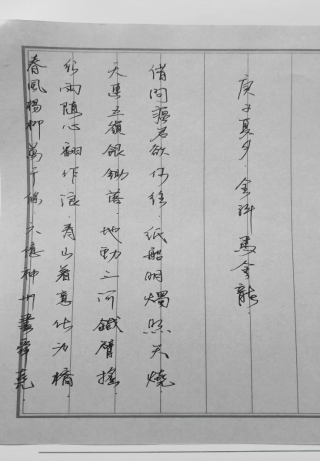 春風楊柳萬千條 六億神州盡舜堯
紅雨隨心翻作浪 青山着意化为橋
天連五嶺銀鋤落 地動三河鐵臂搖
借問瘟君欲何往 紙船明燭照天燒
庚子夏夕 金 馬金龍